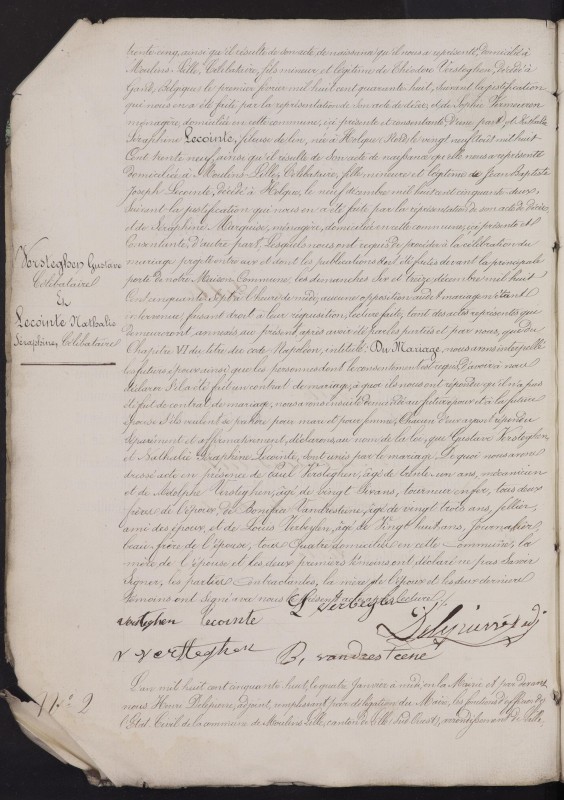 trente cinq, ainsi qu'il résulte de son acte de naissance qu'il nous a représenté, domicilié à
Moulins-Lille, Célibataire, fils mineur et légitime de Théodore Versteghen, décédé à
Gand, Belgique le premier février mil huit cent quarante huit, suivant la justification
qui nous en a été faite par la représentation de son acte de décès, et de Sophie Vermeiren
ménagère, domiciliée en cette commune, ici présente et consentante D'une part, et Nathalie
Séraphine Lecointe, fileuse de lin, née à Holque (Nord), le vingt neuf août mil huit
Cent trente neuf, ainsi qu'il résulte de son acte de naissance qu'elle nous a représenté
Domiciliée à Moulins-Lille, Célibataire, fille mineure et légitime de Jean Baptiste
Joseph Lecointe, décédé à Holque, le neuf décembre mil huit cent cinquante deux,
Suivant la justification qui nous en a été faite par la représentation de son acte de décès,
et de Séraphine Marquise, ménagère, domiciliée en cette commune, ici présente et
Consentante, d'autre part. Lesquels nous ont requis de procéder à la célébration du
mariage projeté entre eux et dont les publications ont été faites devant la principale
porte de notre Maison Commune, les dimanches Six et treize décembre mil huit
Cent cinquante Sept à l'heure de midi, aucune opposition audit mariage n'étant
intervenue; faisant droit à leur réquisition, lecture faite, tant des actes représentés que
demeureront annexés, au présent, après avoir été par les parties et par nous, que du
Chapitre VI du titre du code Napoléon, intitulé: Du Mariage, nous avons interpellé
les futurs époux ainsi que les personnes dont le consentement est requis, d'avoir à nous
déclarer s'il a été fait un contrat de mariage, à quoi ils nous ont répondu qu'il n'a pas
été fait de contrat de mariage, nous avons ensuite demandé au futur époux et à la future
épouse s'ils veulent se prendre pour mari et pour femme; Chacun d'eux ayant répondu
séparément et affirmativement, déclarons au nom de la loi, que Gustave Versteghen,
et Nathalie Séraphine Lecointe, sont unis par le mariage. De quoi nous avons
dressé acte en présence de Paul Versteghen, âgé de trente un ans, mécanicien
et de Adolphe Versteghen, âgé de vingt ans, tourneur en fer, tous deux
frères de l'époux, de Boniface Vandrestiene, âgé de vingt trois ans, sellier,
ami des époux, et de Louis Verbeghen, âgé de vingt huit ans, journalier,
beau-frère de l'épouse, tous Quatre domiciliés en cette Commune; la
mère de l'épouse et les deux premiers témoins ont déclaré ne pas savoir
signer, les parties contractantes, la mère de l'époux et les deux derniers
témoins ont signé avec nous le présent acte, après lecture.
Versteghen Gustave
Célibataire
et
Lecointe Nathalie
Séraphine, Célibataire
versteghen lecointe L Verbeghe
Delepierre adj
v versteghen B, vandrestiene
No 2
L'an mil huit cent cinquante huit, le quatre Janvier à midi, en la Mairie et par devant
nous Henri Delepierre, adjoint, remplissant par délégation du Maire, les fonctions d'officier de
l'État Civil de la commune de Moulins Lille, canton de Lille (Sud Ouest), arrondissement de Lille,